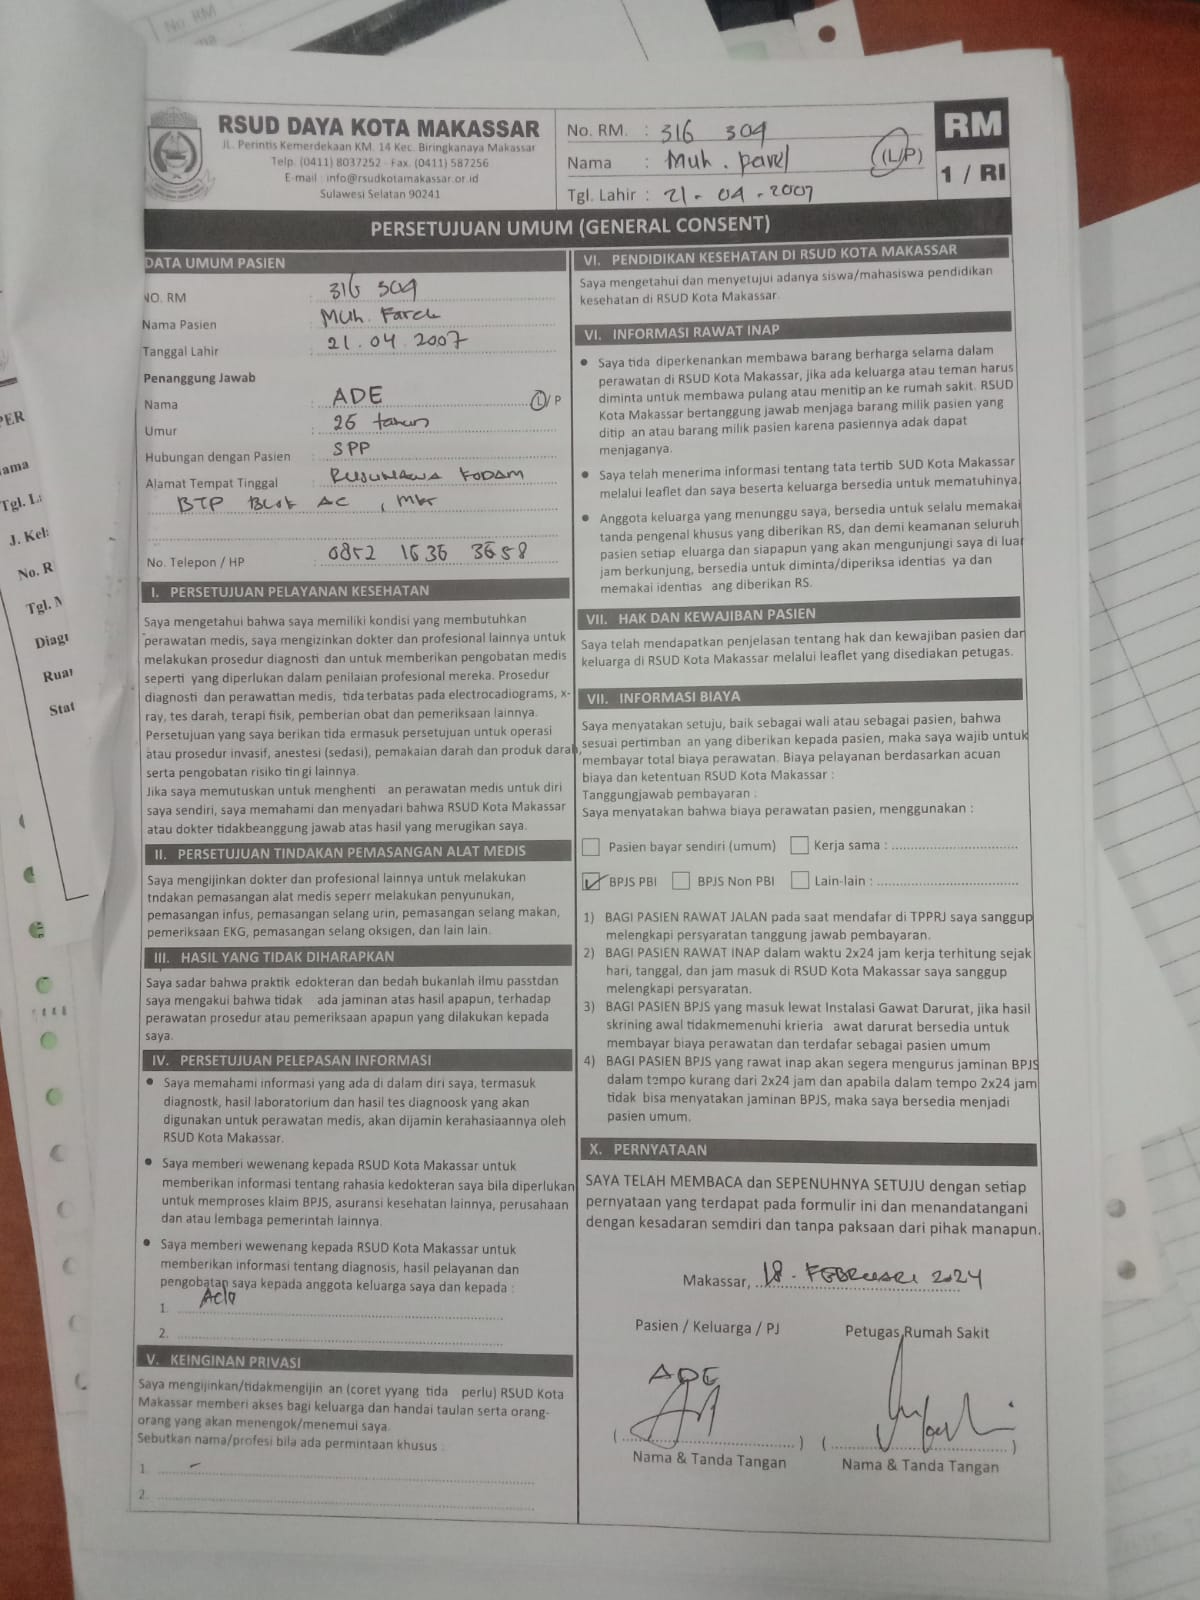 No. RM
RSUD DAYA KOTA MAKASSAR
JL. Perintis Kemerdekaan KM. 14 Kec. Biringkanaya Makassar
Telp. (0411) 8037252 - Fax. (0411) 587256
E-mail : info@rsudkotamakassar.or.id
Sulawesi Selatan 90241
No. RM. : 316 304
Nama : Muh. Parel (L/P)
Tgl. Lahir : 21-04-2007
RM
1 / RI
PERSETUJUAN UMUM (GENERAL CONSENT)
DATA UMUM PASIEN
NO. RM : 316 304
Nama Pasien : Muh. Farel
Tanggal Lahir : 21.04.2007
Penanggung Jawab
Nama : ADE L/P
Umur : 26 tahun
Hubungan dengan Pasien : SPP
Alamat Tempat Tinggal : Rusunawa Kodam
BTP Blok AC , Mkr
No. Telepon / HP : 0852 1636 3658
I. PERSETUJUAN PELAYANAN KESEHATAN
Saya mengetahui bahwa saya memiliki kondisi yang membutuhkan
perawatan medis, saya mengizinkan dokter dan profesional lainnya untuk
melakukan prosedur diagnosti dan untuk memberikan pengobatan medis
seperti yang diperlukan dalam penilaian profesional mereka. Prosedur
diagnosti dan perawattan medis, tida terbatas pada electrocadiograms, x-
ray, tes darah, terapi fisik, pemberian obat dan pemeriksaan lainnya.
Persetujuan yang saya berikan tida ermasuk persetujuan untuk operasi
atau prosedur invasif, anestesi (sedasi), pemakaian darah dan produk darah,
serta pengobatan risiko tin gi lainnya.
Jika saya memutuskan untuk menghenti an perawatan medis untuk diri
saya sendiri, saya memahami dan menyadari bahwa RSUD Kota Makassar
atau dokter tidakbeanggung jawab atas hasil yang merugikan saya.
II. PERSETUJUAN TINDAKAN PEMASANGAN ALAT MEDIS
Saya mengijinkan dokter dan profesional lainnya untuk melakukan
tndakan pemasangan alat medis seperr melakukan penyunukan,
pemasangan infus, pemasangan selang urin, pemasangan selang makan,
pemeriksaan EKG, pemasangan selang oksigen, dan lain lain.
III. HASIL YANG TIDAK DIHARAPKAN
Saya sadar bahwa praktik edokteran dan bedah bukanlah ilmu passtdan
saya mengakui bahwa tidak ada jaminan atas hasil apapun, terhadap
perawatan prosedur atau pemeriksaan apapun yang dilakukan kepada
saya.
IV. PERSETUJUAN PELEPASAN INFORMASI
● Saya memahami informasi yang ada di dalam diri saya, termasuk
diagnostk, hasil laboratorium dan hasil tes diagnoosk yang akan
digunakan untuk perawatan medis, akan dijamin kerahasiaannya oleh
RSUD Kota Makassar.
● Saya memberi wewenang kepada RSUD Kota Makassar untuk
memberikan informasi tentang rahasia kedokteran saya bila diperlukan
untuk memproses klaim BPJS, asuransi kesehatan lainnya, perusahaan
dan atau lembaga pemerintah lainnya.
● Saya memberi wewenang kepada RSUD Kota Makassar untuk
memberikan informasi tentang diagnosis, hasil pelayanan dan
pengobatan saya kepada anggota keluarga saya dan kepada :
1.
2.
V. KEINGINAN PRIVASI
Saya mengijinkan/tidakmengijin an (coret yyang tida perlu) RSUD Kota
Makassar memberi akses bagi keluarga dan handai taulan serta orang-
orang yang akan menengok/menemui saya.
Sebutkan nama/profesi bila ada permintaan khusus :
1. -
2.
VI. PENDIDIKAN KESEHATAN DI RSUD KOTA MAKASSAR
Saya mengetahui dan menyetujui adanya siswa/mahasiswa pendidikan
kesehatan di RSUD Kota Makassar.
VI. INFORMASI RAWAT INAP
● Saya tida diperkenankan membawa barang berharga selama dalam
perawatan di RSUD Kota Makassar, jika ada keluarga atau teman harus
diminta untuk membawa pulang atau menitip an ke rumah sakit. RSUD
Kota Makassar bertanggung jawab menjaga barang milik pasien yang
ditip an atau barang milik pasien karena pasiennya adak dapat
menjaganya.
● Saya telah menerima informasi tentang tata tertib SUD Kota Makassar
melalui leaflet dan saya beserta keluarga bersedia untuk mematuhinya.
● Anggota keluarga yang menunggu saya, bersedia untuk selalu memakai
tanda pengenal khusus yang diberikan RS, dan demi keamanan seluruh
pasien setiap eluarga dan siapapun yang akan mengunjungi saya di luar
jam berkunjung, bersedia untuk diminta/diperiksa identias ya dan
memakai identias ang diberikan RS.
VII. HAK DAN KEWAJIBAN PASIEN
Saya telah mendapatkan penjelasan tentang hak dan kewajiban pasien dan
keluarga di RSUD Kota Makassar melalui leaflet yang disediakan petugas.
VII. INFORMASI BIAYA
Saya menyatakan setuju, baik sebagai wali atau sebagai pasien, bahwa
sesuai pertimban an yang diberikan kepada pasien, maka saya wajib untuk
membayar total biaya perawatan. Biaya pelayanan berdasarkan acuan
biaya dan ketentuan RSUD Kota Makassar :
Tanggungjawab pembayaran :
Saya menyatakan bahwa biaya perawatan pasien, menggunakan :
Pasien bayar sendiri (umum) Kerja sama :
✓ BPJS PBI BPJS Non PBI Lain-lain :
1) BAGI PASIEN RAWAT JALAN pada saat mendafar di TPPRJ saya sanggup
melengkapi persyaratan tanggung jawab pembayaran.
2) BAGI PASIEN RAWAT INAP dalam waktu 2x24 jam kerja terhitung sejak
hari, tanggal, dan jam masuk di RSUD Kota Makassar saya sanggup
melengkapi persyaratan.
3) BAGI PASIEN BPJS yang masuk lewat Instalasi Gawat Darurat, jika hasil
skrining awal tidakmemenuhi krieria awat darurat bersedia untuk
membayar biaya perawatan dan terdafar sebagai pasien umum
4) BAGI PASIEN BPJS yang rawat inap akan segera mengurus jaminan BPJS
dalam tempo kurang dari 2x24 jam dan apabila dalam tempo 2x24 jam
tidak bisa menyatakan jaminan BPJS, maka saya bersedia menjadi
pasien umum.
X. PERNYATAAN
SAYA TELAH MEMBACA dan SEPENUHNYA SETUJU dengan setiap
pernyataan yang terdapat pada formulir ini dan menandatangani
dengan kesadaran semdiri dan tanpa paksaan dari pihak manapun.
Makassar, 18. FEBRUARI 2024
Pasien / Keluarga / PJ Petugas Rumah Sakit
ADE
Nama & Tanda Tangan Nama & Tanda Tangan
PER
ama
Tgl. L
J. Kel
No. R
Tgl. M
Diagr
Ruar
Stat